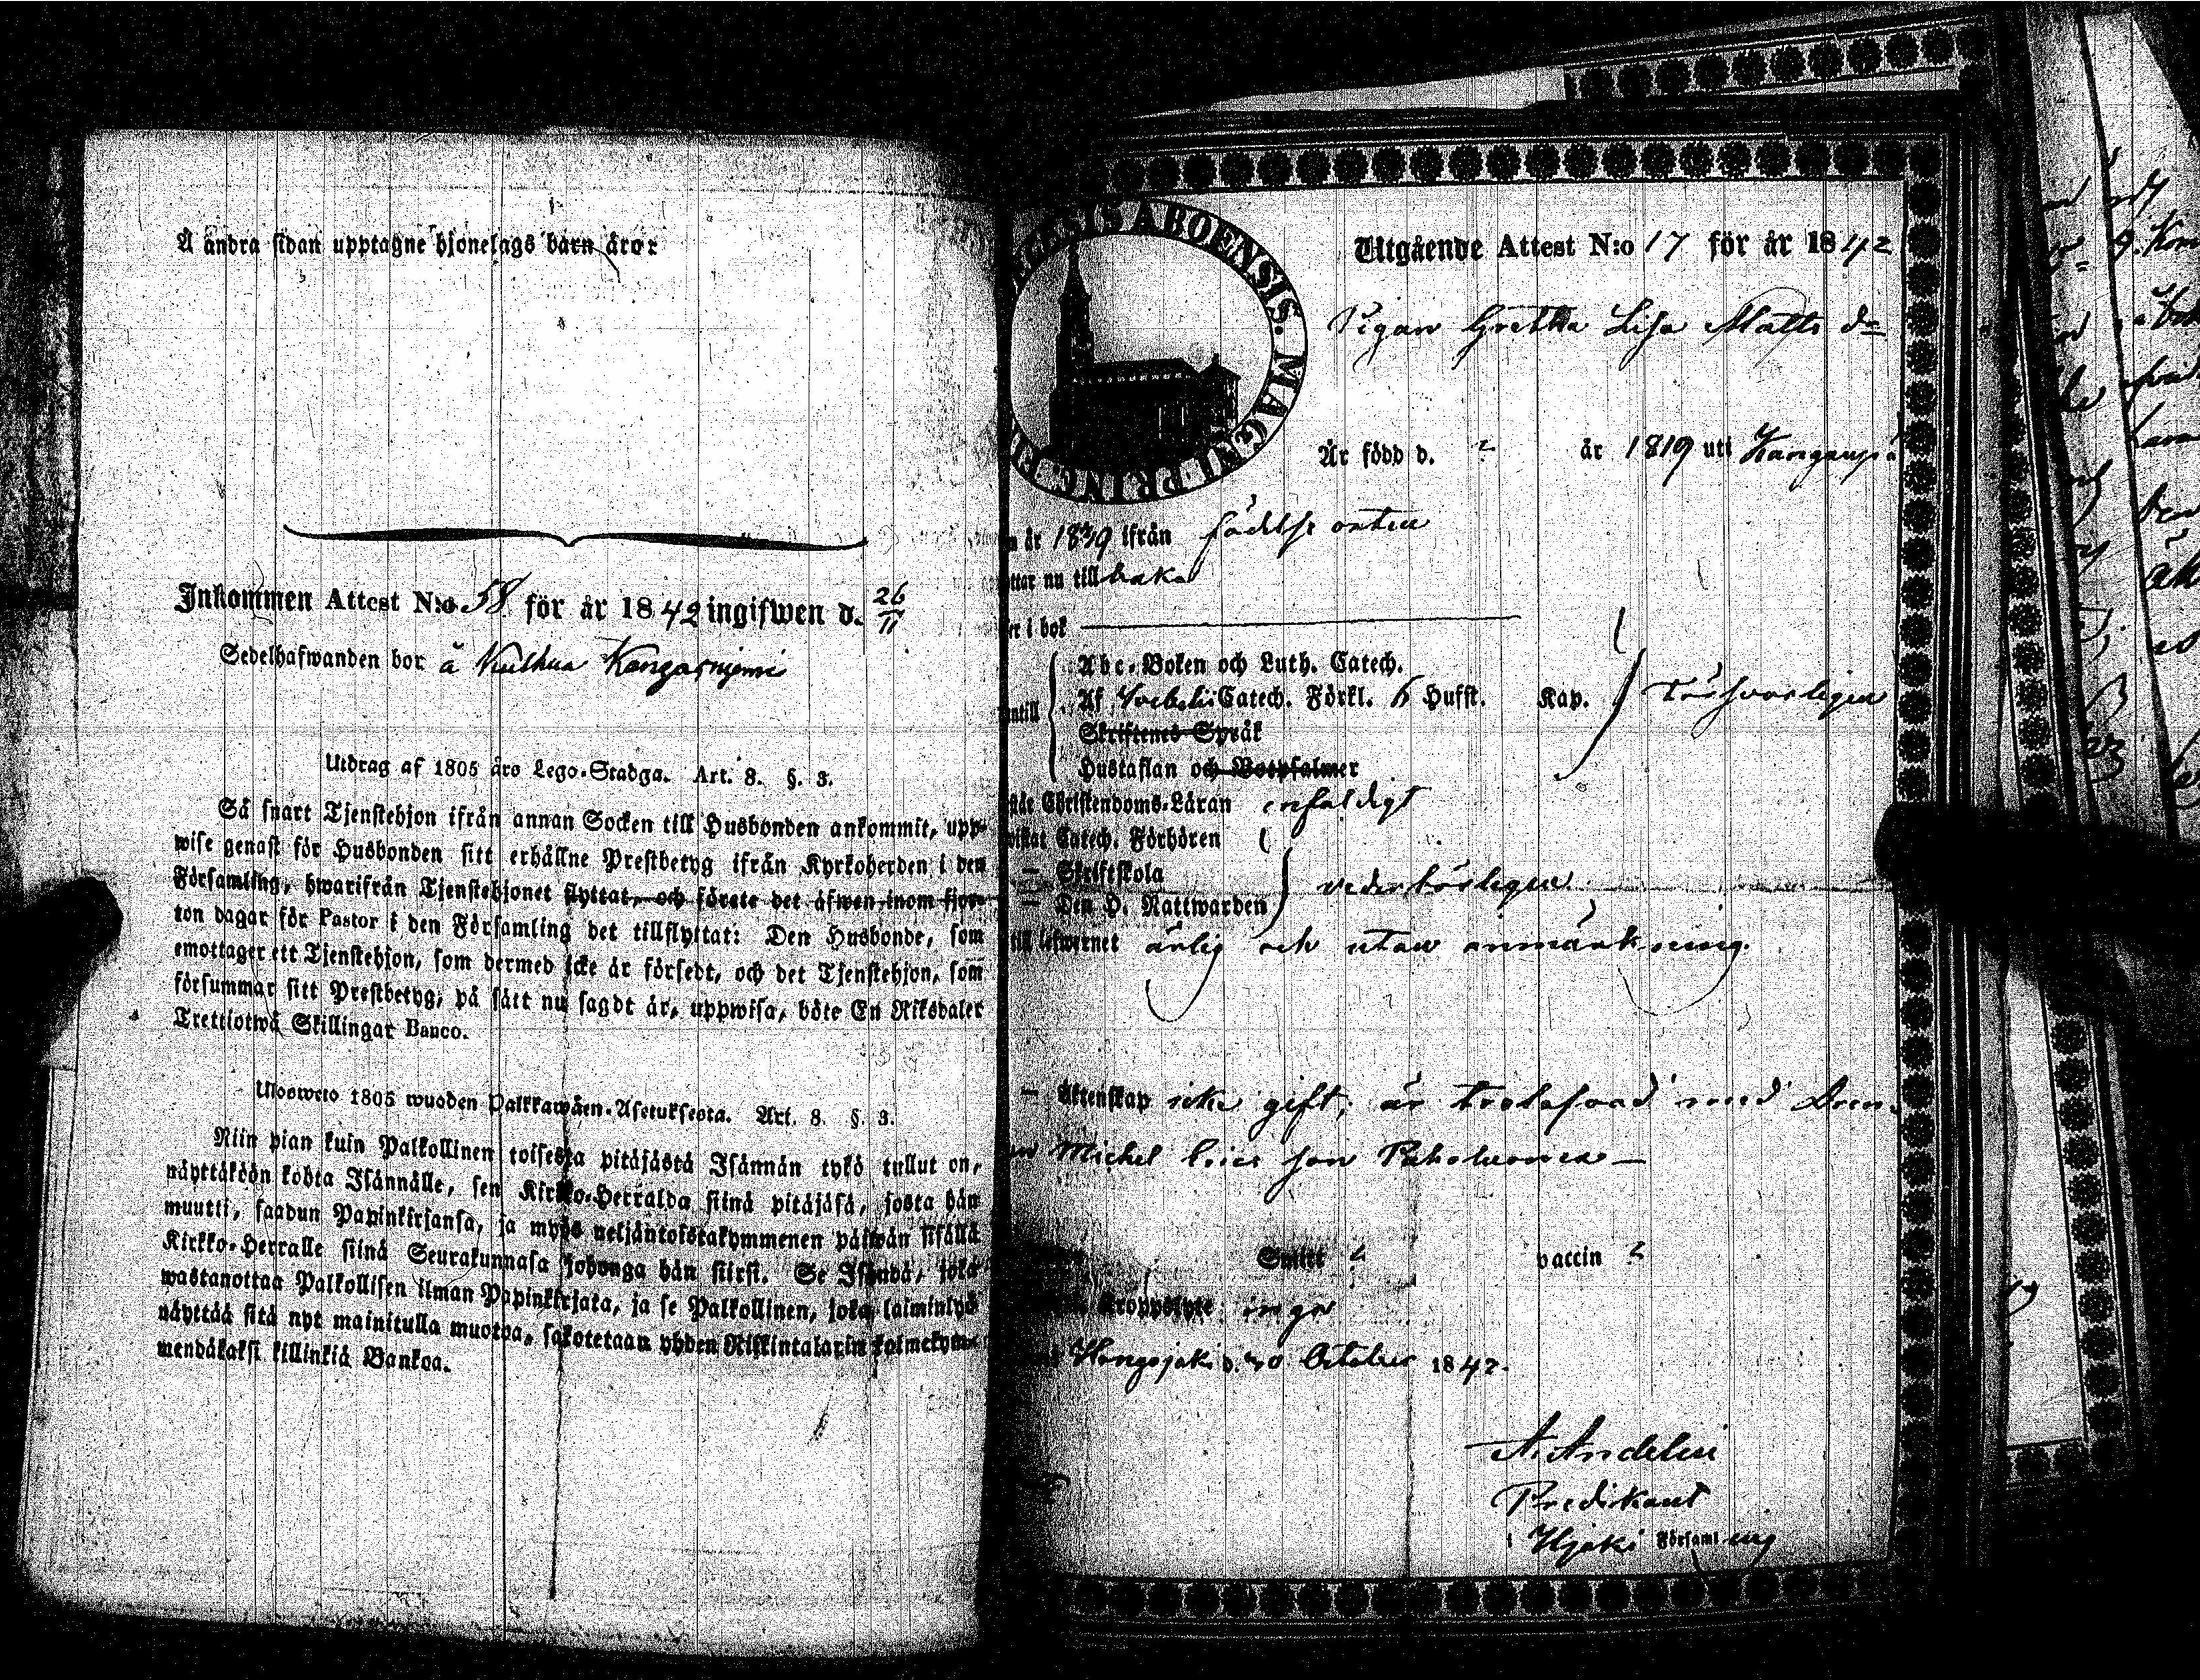 Å andra sidan upptagne hjonelags barn äro:
Inkommen Attest N:o 58 för år 1842 ingifwen d. 26/11
Sedelhafwanden bor å Kangasniemi
Utdrag af 1805 års Lego-Stadga. Art. 8. §. 3.
Så snart Tjenstehjon ifrån annan Socken till Husbonden ankommit, upp-
wise genast för Husbonden sitt erhållne Prestbetyg ifrån Kyrkoherden i den
Församling, hwarifrån Tjenstehjonet flyttat, och förete det äfwen inom fjor-
ton dagar för Pastor i den Församling det tillflyttat: Den Husbonde, som
emottager ett Tjenstehjon, som dermed icke är försedt, och det Tjenstehjon, som
försummar sitt Prestbetyg, på sätt nu sagdt är, uppwisa, böte En Riksdaler
Trettiotwå Skillingar Banco.
Uloswето 1805 wuoden Palkkawäen-Asetuksesta. Art. 8. §. 3.
Niin pian kuin Palkollinen toisesta pitäjästä Isännän tykö tullut on,
näyttäköön kohta Isännälle, sen Kirkko-Herralda siinä pitäjäsä, josta hän
muutti, saadun Papinkirjansa, ja myös neljäntoistakymmenen päiwän sisällä
Kirkko-Herralle siinä Seurakunnasa johonga hän siirsi. Se Isändä, joka
wastanottaa Palkollisen ilman Papinkirjata, ja se Palkollinen, joka laiminlyö
näyttää sitä nyt mainitulla muotoa, sakotetaan yhden Riikintalarin kolmekym-
mendäkaksi killinkiä Bankoa.
ABOENSIS. MAGNI PRINC. FI
Utgående Attest N:o 17 för år 1842
Pigan Gretha Lisa Matts dr
Är född d. ? år 1819 uti
år 1839 ifrån födelse orten
ttar nu till baka
er i bok
Abc-Boken och Luth. Catech.
Af Catech. Förkl. 6 Hufst. Kap. försvarligen
ntill
Skriftenes Språk
Hustaflan och Botpsalmer
står Christendoms-Läran enfaldigt
wistat Catech. Förhören
— Skriftskola
— Den H. Nattwarden vederbörligen
till lefwernet ärlig och utan anmärkning.
— Äktenskap icke gift, är trolofvad med Dren-
Michel
Smitt ? vaccin ?
Kroppslyte inga
d. 30 October 1842.
A. Andelin
Predikant
i Hjoki Församling